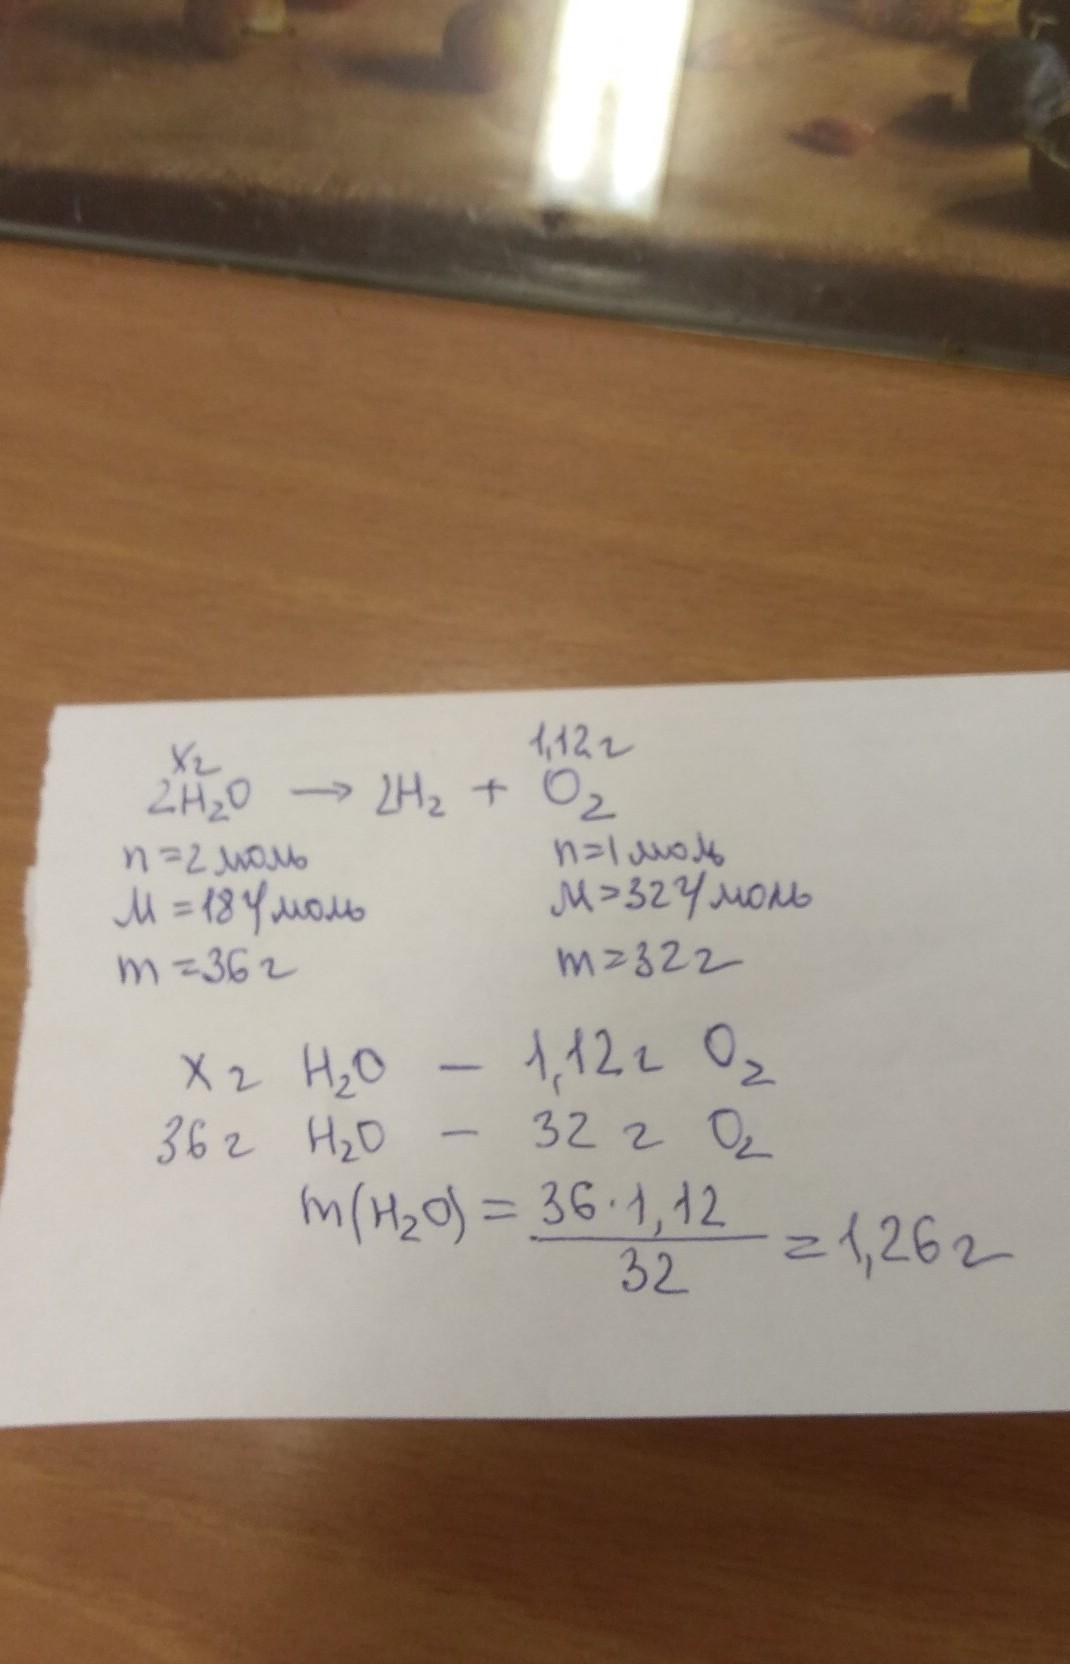 x г 1,12 г
2H₂O → 2H₂ + O₂
n = 2 моль n = 1 моль
M = 18 г/моль M = 32 г/моль
m = 36 г m = 32 г
x г H₂O — 1,12 г O₂
36 г H₂O — 32 г O₂
m(H₂O) = 36 · 1,12 / 32 = 1,26 г